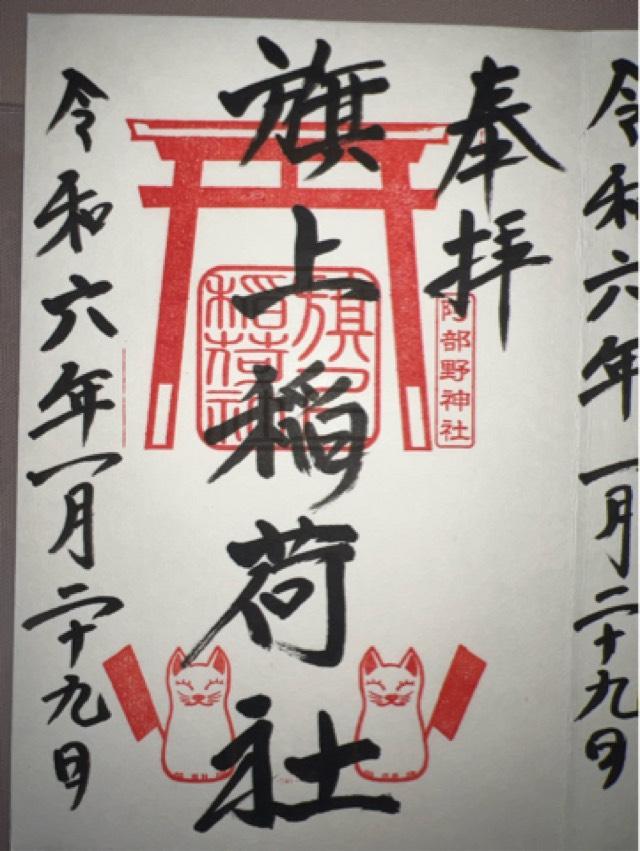 令和六年一月二十九日
奉拝
阿部野神社
旗上稲荷社
旗上稲荷社
令和六年一月二十九日